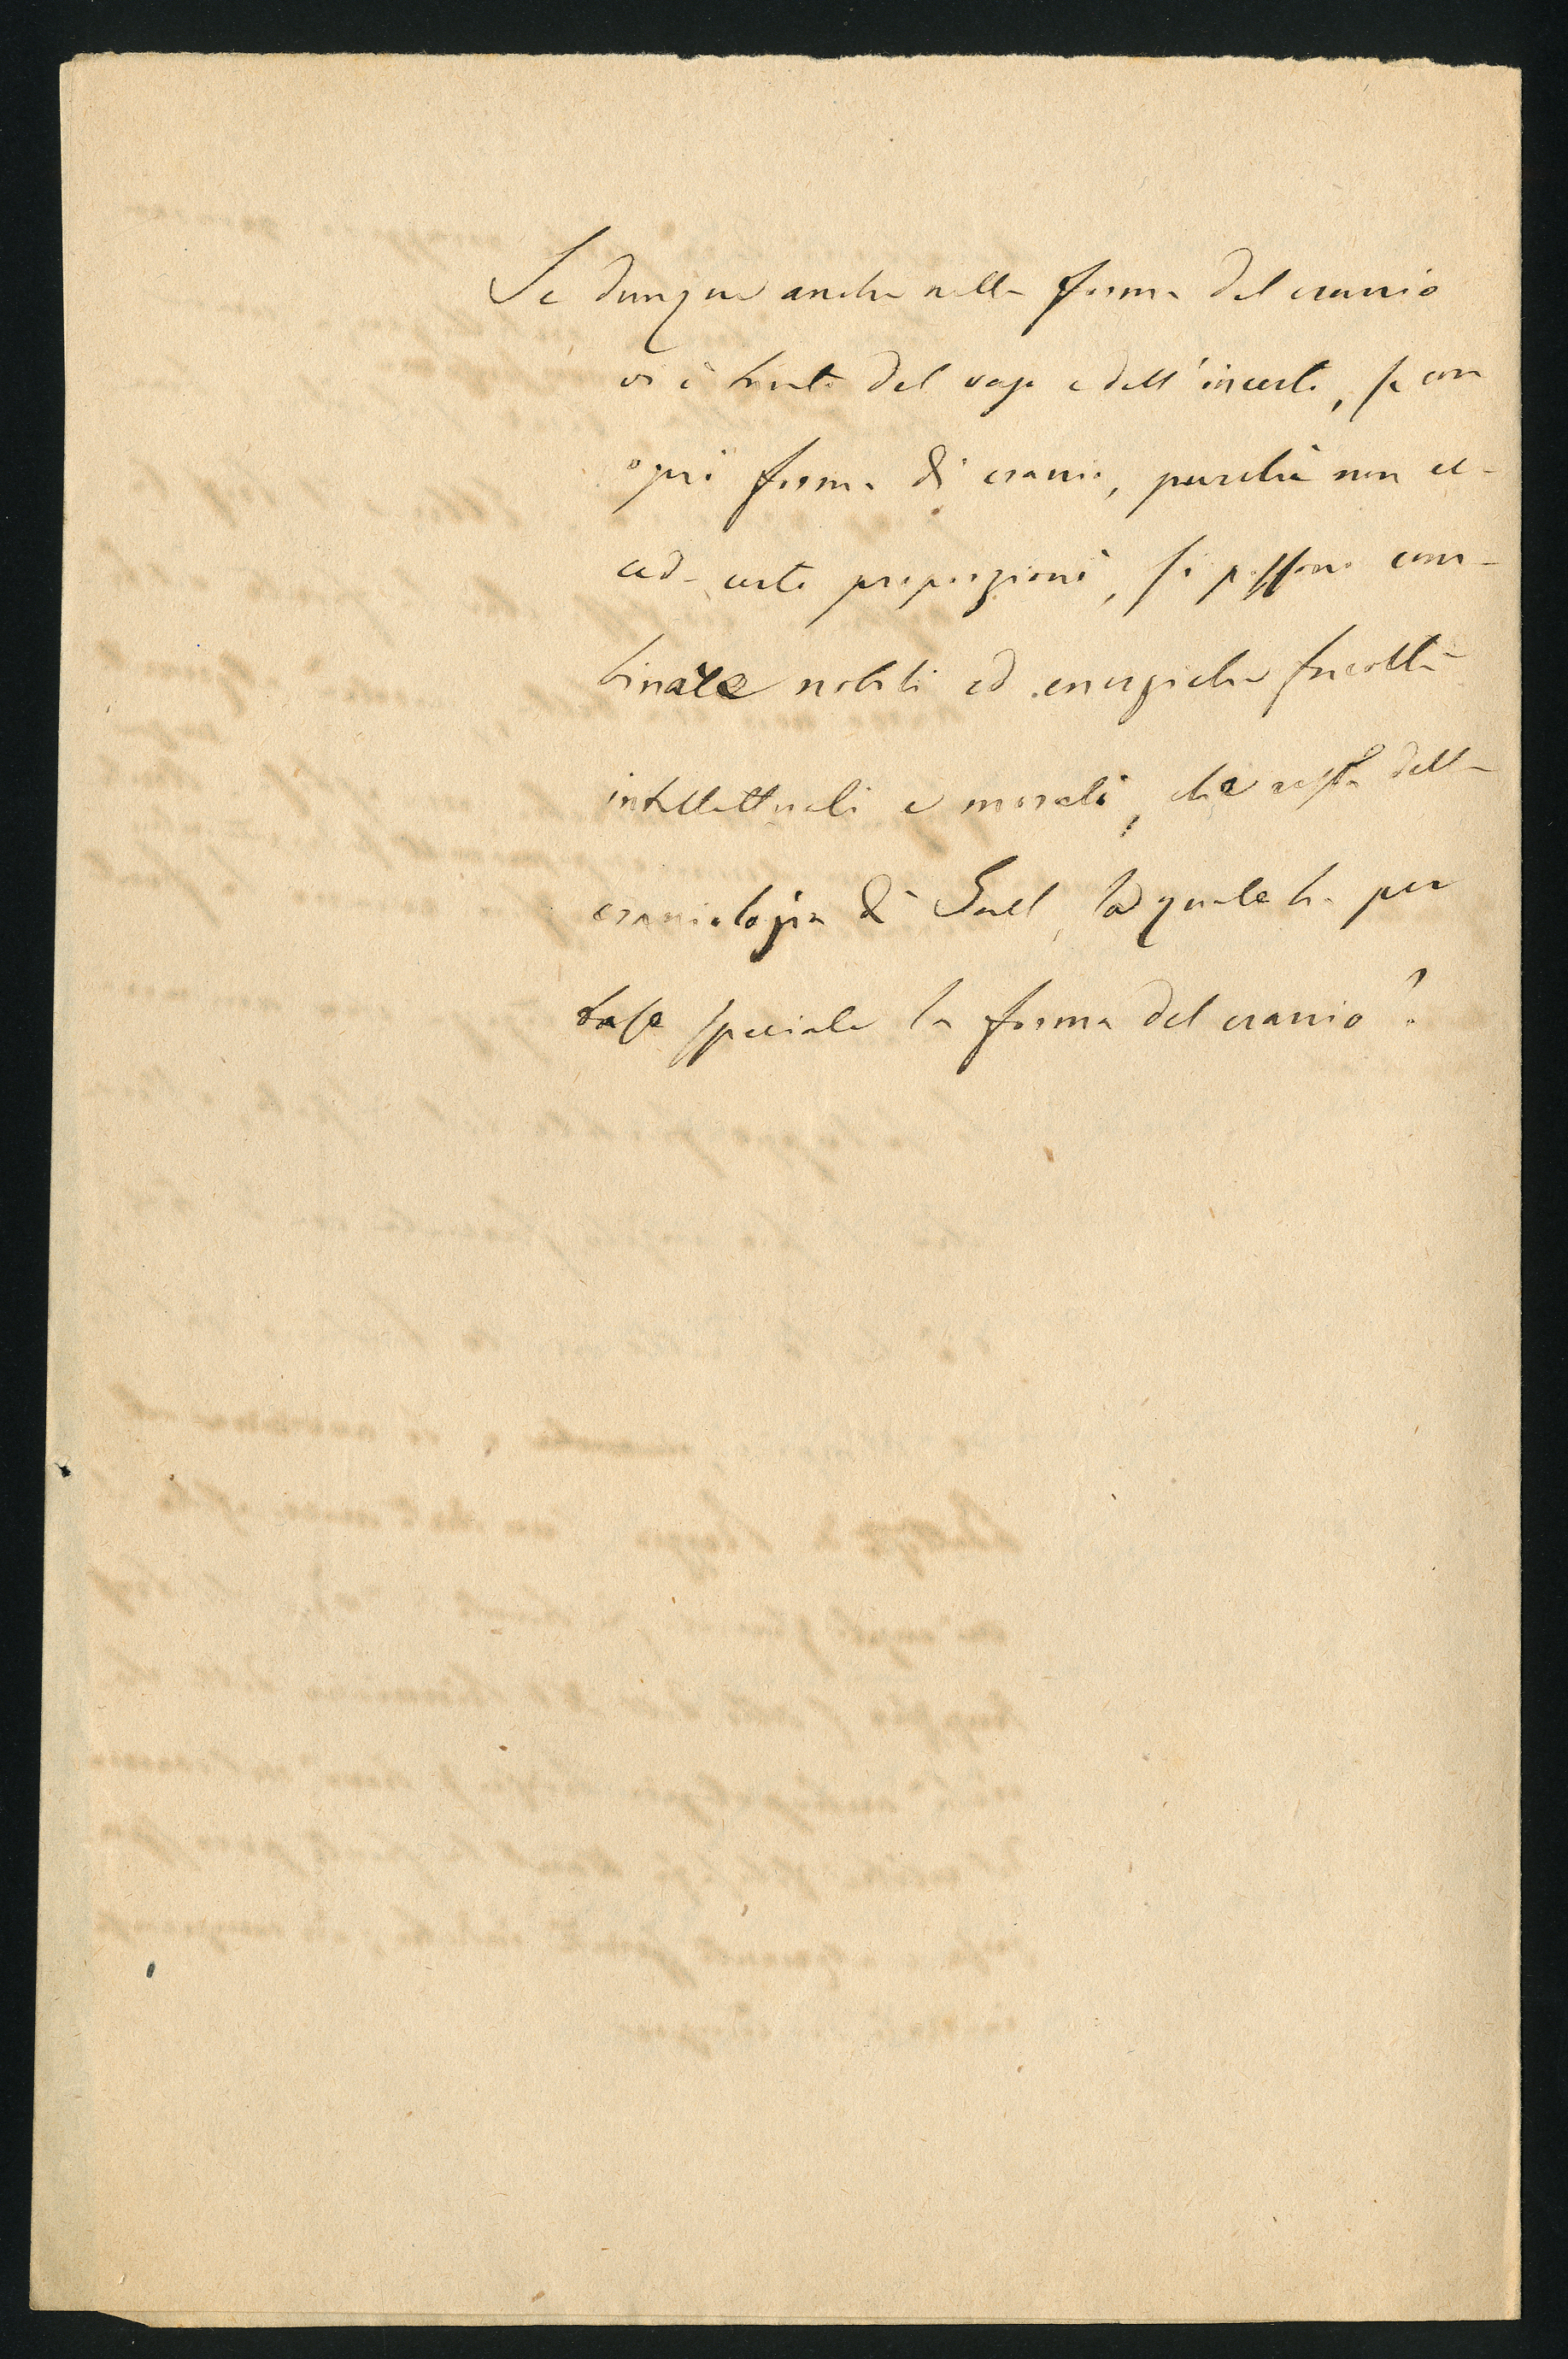 Se dunque anche nella forma del cranio
vi è tanto del vago e dell'incerto, se con
ogni forma di cranio, purchè non ec-
ceda certe proporzioni, si possono com-
binare nobili ed energiche facoltà
intellettuali e morali, che resta della
craniologia di Gall, la quale ha per
base speciale la forma del cranio?